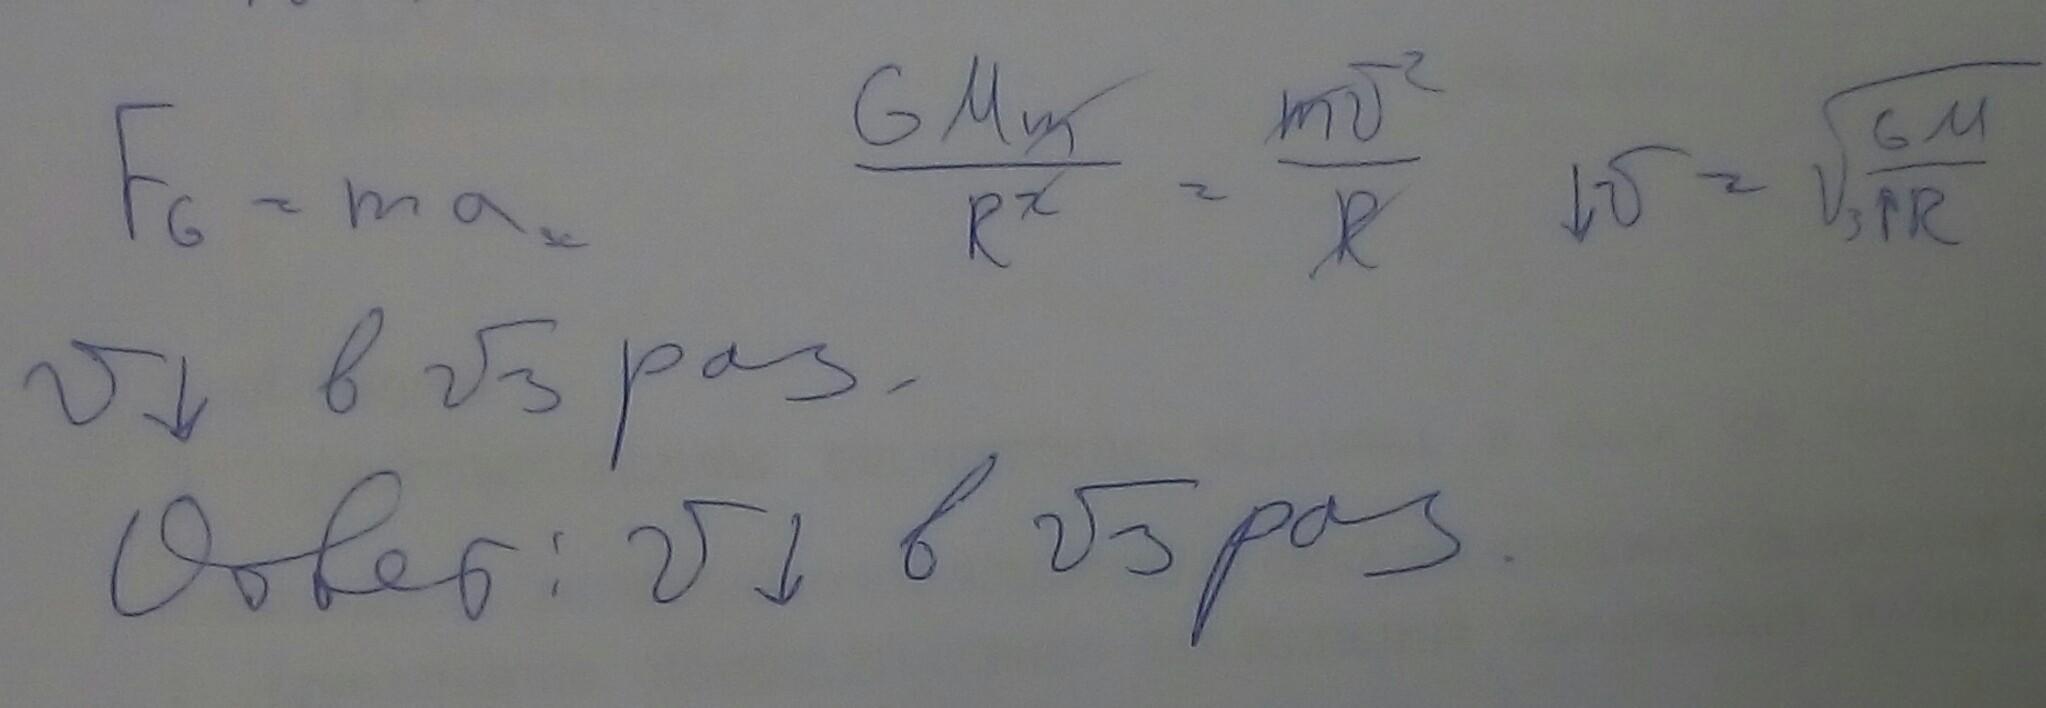 F_G = ma_x    GMm/R² = mv²/R    ↓v = √(GM/3↑R)
v↓ в √3 раз.
Ответ: v↓ в √3 раз.